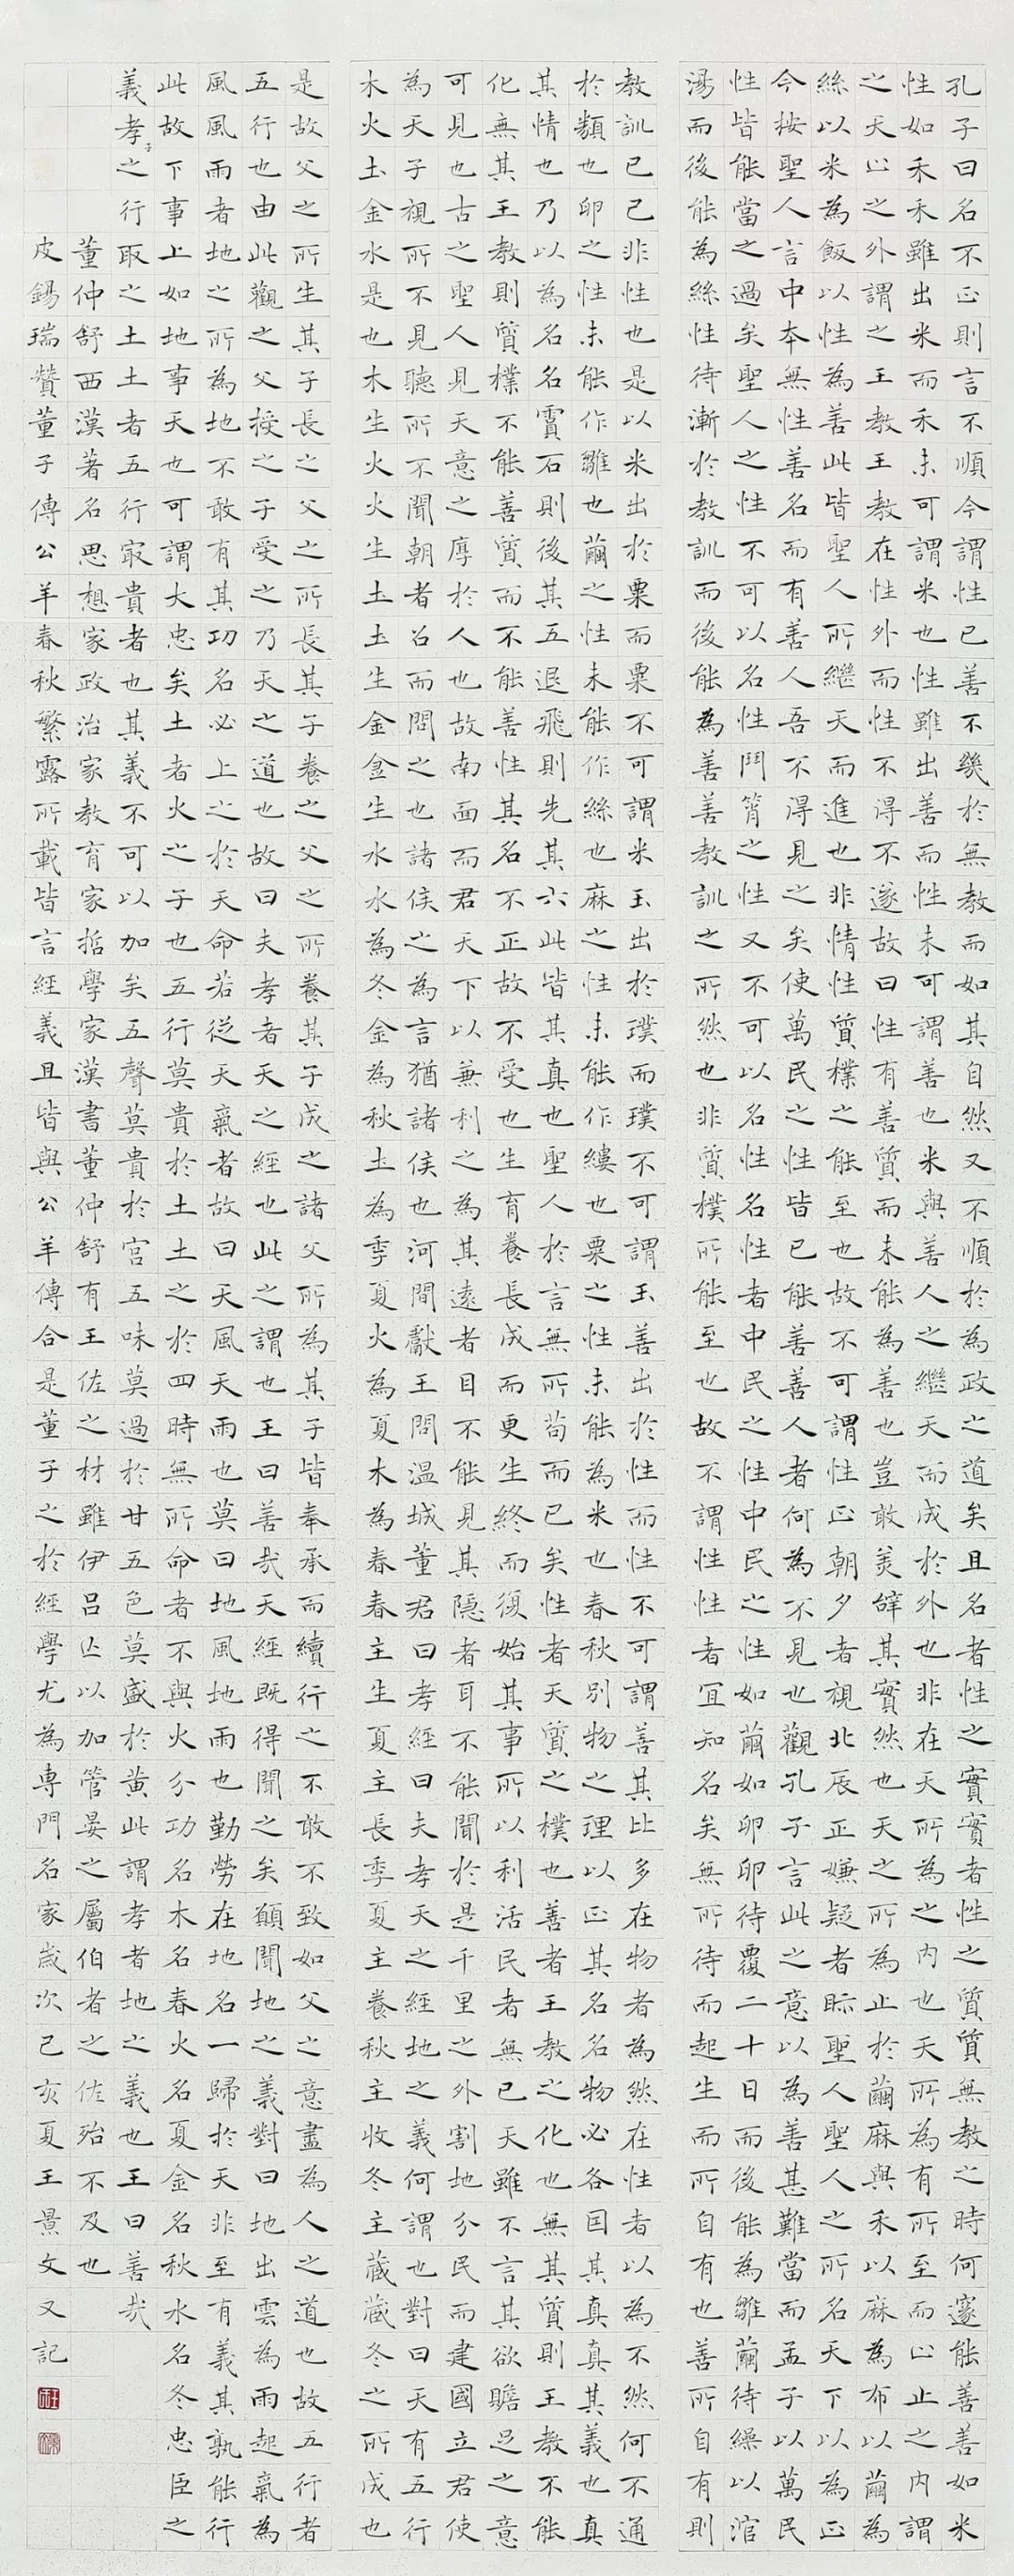 孔子曰名不正則言不順今謂性已善不幾於無教而如其自然又不順於為政之道矣且名者性之實實者性之質質無教之時何遽能善善如米
性如禾禾雖出米而禾未可謂米也性雖出善而性未可謂善也米與善人之繼天而成於外也非在天所為之內也天所為有所至而止止之內謂
之天止之外謂之王教王教在性外而性不得不遂故曰性有善質而未能為善也豈敢美辭其實然也天之所為止於繭麻與禾以麻為布以繭為
絲以米為飯以性為善此皆聖人所繼天而進也非情性質樸之能至也故不可謂性正朝夕者視北辰正嫌疑者眎聖人聖人之所名天下以為正
今按聖人言中本無性善名而有善人吾不得見之矣使萬民之性皆已能善善人者何為不見也觀孔子言此之意以為善甚難當而孟子以萬民
性皆能當之過矣聖人之性不可以名性鬥筲之性又不可以名性名性者中民之性中民之性如繭如卵卵待覆二十日而後能為雛繭待繰以涫
湯而後能為絲性待漸於教訓而後能為善善教訓之所然也非質樸所能至也故不謂性性者宜知名矣無所待而起生而所自有也善所自有則
教訓已已非性也是以米出於粟而粟不可謂米玉出於璞而璞不可謂玉善出於性而性不可謂善其比多在物者為然在性者以為不然何不通
於類也卵之性未能作雛也繭之性未能作絲也麻之性未能作縷也粟之性未能為米也春秋別物之理以正其名名物必各因其真真其義也真
其情也乃以為名名霣石則後其五退飛則先其六此皆其真也聖人於言無所苟而已矣性者天質之樸也善者王教之化也無其質則王教不能
化無其王教則質樸不能善質而不能善性其名不正故不受也生育養長成而更生終而復始其事所以利活民者無已天雖不言其欲贍足之意
可見也古之聖人見天意之厚於人也故南面而君天下以兼利之為其遠者目不能見其隱者耳不能聞於是千里之外割地分民而建國立君使
為天子視所不見聽所不聞朝者召而問之也諸侯之為言猶諸侯也河間獻王問温城董君曰孝經曰夫孝天之經地之義何謂也對曰天有五行
木火土金水是也木生火火生土土生金金生水水為冬金為秋土為季夏火為夏木為春春主生夏主長季夏主養秋主收冬主藏藏冬之所成也
是故父之所生其子長之父之所長其子養之父之所養其子成之諸父所為其子皆奉承而續行之不敢不致如父之意盡為人之道也故五行者
五行也由此觀之父授之子受之乃天之道也故曰夫孝者天之經也此之謂也王曰善哉天經既得聞之矣願聞地之義對曰地出雲為雨起氣為
風風雨者地之所為地不敢有其功名必上之於天命若從天氣者故曰天風天雨也莫曰地風地雨也勤勞在地名一歸於天非至有義其孰能行
此故下事上如地事天也可謂大忠矣土者火之子也五行莫貴於土土之於四時無所命者不與火分功名木名春火名夏金名秋水名冬忠臣之
義孝子之行取之土土者五行最貴者也其義不可以加矣五聲莫貴於宮五味莫過於甘五色莫盛於黃此謂孝者地之義也王曰善哉
董仲舒西漢著名思想家政治家教育家哲學家漢書董仲舒有王佐之材雖伊呂亡以加管晏之屬伯者之佐殆不及也
皮錫瑞贊董子傳公羊春秋繁露所載皆言經義且皆與公羊傳合是董子之於經學尤為專門名家歲次己亥夏王景文又記